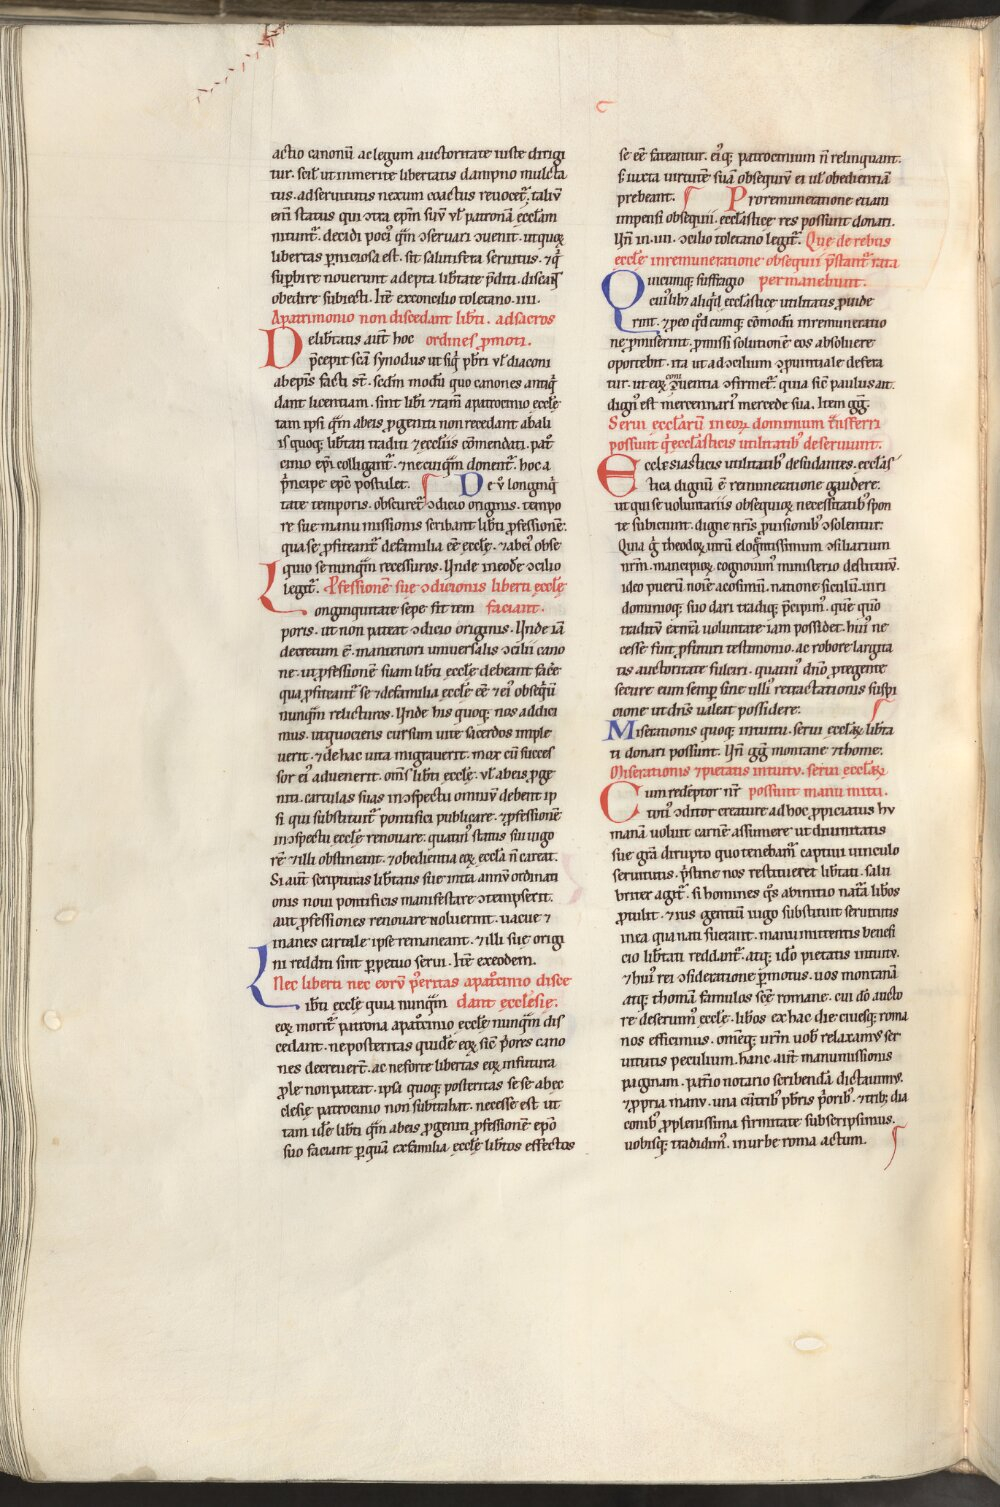 actio canonū ac legum auctoritate iuste dirigi
tur. scil̄ ut inmerite libertatis dampno mulcta
tus. ad seruitutis nexum coactus reuocet᷑. taliū
eni̅ status qui ↄtra ep̄m suū ul̓ patronā eccl̄am
nitunt᷑. decidi poci᷒ qm̄ ↄseruari ↄuenit. ut quoꝝ
libertas ꝑniciosa est. sit salutifera seruitus. ⁊ q̇
suꝑbire nouerunt adepta lib̄tate p̄diti. discāt
obedire subiecti. Itē ex concilio toletano. iiii.
A patrimonio non discedant lib̄ti. ad sacros
De lib̄tatis aut̄ hoc ordines ꝓmoti.
p̄cepit sc̄a synodus ut siq̇ pb̄ri ul̓ diaconi
ab ep̄is facti st̄. scd̄m modū quo canones antiq̇
dant licentiam. sint lib̄i ⁊ tam̄ a patrocinio eccl̄e
tam ipsi qm̄ ab eis ꝓgeniti non recedant ab ali
is quoq; lib̄tati traditi ⁊ eccl̄iis cōmendati. pat᷒
cinio ep̄i colligant᷑. ⁊ ne cuiqm̄ donent᷑. hoc a
p̄ncipe ep̄c postulet. De ū longinq̇
tate temporis. obscuret᷑ ↄdicio originis. tempo
re sue manumissionis scribant lib̄ti ꝓfessionē.
qua se ꝓfiteant᷑ de familia eē eccl̄e. ⁊ ab ei᷒ obse
quio se nunqm̄ recessuros. Unde in eodē ↄcilio
legit᷑. Pfessionē sue ↄdicionis liberti eccl̄e
Longinquitate sepe fit tem faciant.
poris. ut non pateat ↄdicio originis. Unde iā
decretum ē. in anteriori uniuersalis ↄcilii cano
ne. ut ꝓfessionē suam lib̄ti eccl̄e debeant facē
qua ꝓfiteant᷑ se ⁊ de familia eccl̄e eē ⁊ ei᷒ obseq̇ū
nunqm̄ relicturos. Unde his quoq; nos addici
mus. ut quociens cursum uite sacerdos imple
uerit. ⁊ de hac uita migrauerit. mox cū succes
sor ei᷒ aduenerit. om̄s lib̄ti eccl̄e. ul̓ ab eis ꝓge
niti. cartulas suas in ↄspectu omniū debent ip
si qui substituit᷑ pontifici publicare. ⁊ ꝓfessionē
in ↄspectu eccl̄e renouare. quatin᷒ status sui uigo
rē ⁊ illi obtineant. ⁊ obedientia eoꝝ eccl̄a n̄ careat.
Si aut̄ scripturas lib̄tatis sue intra annū ordinati
onis noui pontificis manifestare ↄtempserit.
aut ꝓfessiones renouare noluerint. uacue ⁊
inanes cartule ipse remaneant. ⁊ illi sue origi
ni redditi sint ꝑpetuo serui. Itē ex eodem.
Nec liberti nec eorū p̄eritas a pat᷒cinio disce
Lib̄ti eccl̄e quia nunqm̄ dant eccl̄esie.
eoꝝ morit᷑ patrona a pat᷒cinio eccl̄e nunqm̄ dis
cedant. ne posteritas quidē eoꝝ. sic̄ p̄ores cano
nes decreuert̄. ac ne forte libertas eoꝝ in futura
ꝓle non pateat. ipsa quoq; posteritas se se ab ec
clesie patrocinio non subtrahat. necesse est ut
tam idē lib̄ti qm̄ ab eis ꝓgeniti ꝓfessionē ep̄o
suo faciant ꝑ quā ex familia eccl̄e lib̄tos effectos
se eē fateantur. ei᷒q; patrocinium n̄ relinquant.
s; iuxta uirtutē suā obsequiū ei ul̓ obedientiā
prebeant. Pro remuneratione etiam
impensi obsequii. eccl̄astice res possunt donari.
Un̄ in. iiii. ↄcilio toletano legit᷑. Que de rebus
eccl̄e in remuneratione obsequii p̄stant᷑ rata
Quicumq; suffragio permanebunt.
cui᷒libꝫ aliq̇d eccl̄astice utilitatis ꝓuide
rint. ⁊ ꝓ eo q̇dcumq; cōmodū in remuneratio
ne ꝓmiserint. ꝓmissi solutionē eos absoluere
oportebit. ita ut ad ↄcilium ꝓuintiale defera
tur. ut eoꝝ ↄniuentia ↄfirmet᷑. quia sic̄ paulus ait.
dign᷒ est mercennari᷒ mercede sua. Item gḡ.
Serui eccl̄arū in eoꝝ dominium t̄nsferri
possunt q̇ eccl̄asticis utilitatib᷒ deseruiunt.
Ecclesiasticis utilitatib᷒ desudantes. eccl̄as
tica dignū ē remuneratione gaudere.
ut qui se uoluntariis obsequioꝝ necessitatib᷒ spon
te subiciunt. digne nr̄is ꝓuisionib᷒ ↄsolentur.
Quia g̊ theodoꝝ uirū eloq̄ntissimum ↄsiliarium
nr̄m. mancipioꝝ. cognouim᷒ ministerio destitutū.
ideo puerū noīe acosimū. natione siculū. iuri
dominioq; suo dari tradiq; p̄cipim᷒. quē quō
traditū ex n̄ra uoluntate iam possidet. hui᷒ ne
cesse fuit ꝓfuturi testimonio. ac robore largita
tis auctoritate fulciri. quatin᷒ dn̄o ꝓtegente
secure eum semꝑ sine ulli᷒ retractationis suspi
cione ut dn̄s ualeat possidere.
Miserationis quoq; intuitu. serui eccl̄aꝝ lib̄ta
ti donari possunt. Un̄ gḡ montane ⁊ thome.
Miserationis ⁊ pietatis intuitu. serui eccl̄aꝝ
Cum redēptor nr̄ possunt manu mitti.
toti᷒ ↄditor creature ad hoc ꝓpiciatus hu
manā uoluit carnē assumere ut diuinitatis
sue gr̄a dirupto quo tenebam᷒ captiui uinculo
seruitutis. p̄stine nos restitueret lib̄tati. salu
briter agit᷑. si homines q̇s ab initio nat᷒a lib̄os
ꝓtulit. ⁊ ius gentiū iugo substituit seruitutis
in ea qua nati fuerant. manu mittentis benefi
cio lib̄tati reddant᷑. atq; idō pietatis intuitu.
⁊ hui᷒ rei ↄsideratione ꝑmotus. uos montanā
atq; thomā famulos sc̄e romane. cui dō aucto
re deseruim᷒ eccl̄e. lib̄os ex hac die ciuesq; roma
nos efficimus. omēq; ur̄m uob̄ relaxam᷒ ser
uitutis peculium. hanc aut̄ manumissionis
paginam. pat̄io notario scribendā dictauim᷒.
⁊ ꝓpria manu. una cū trib᷒ pb̄ris p̄orib᷒. ⁊ trib; dia
conib᷒ ꝓ plenissima firmitate subscripsimus.
uobisq; tradidim᷒. in urbe roma actum.